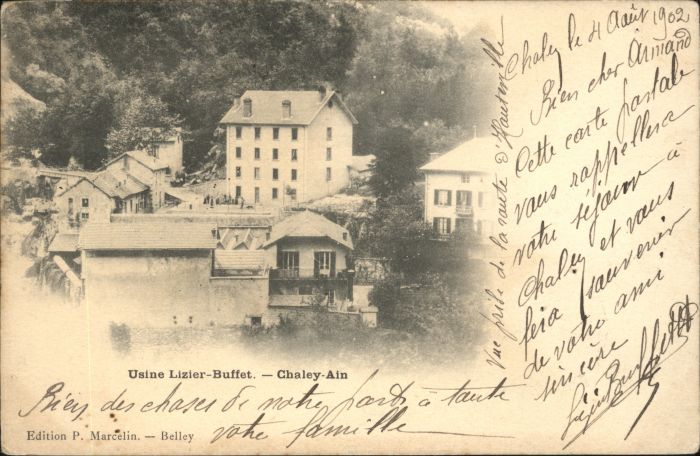 Chaley le 4 Août 1902
Bien cher Armand
Cette carte postale
vous rappellera
votre séjour à
Chaley et vous
fera souvenir
de votre ami
sincère
Buffet
Vue prise de la route d'Hauteville
Usine Lizier-Buffet. — Chaley-Ain
Bien des choses de notre part à toute
votre famille
Edition P. Marcelin. — Belley